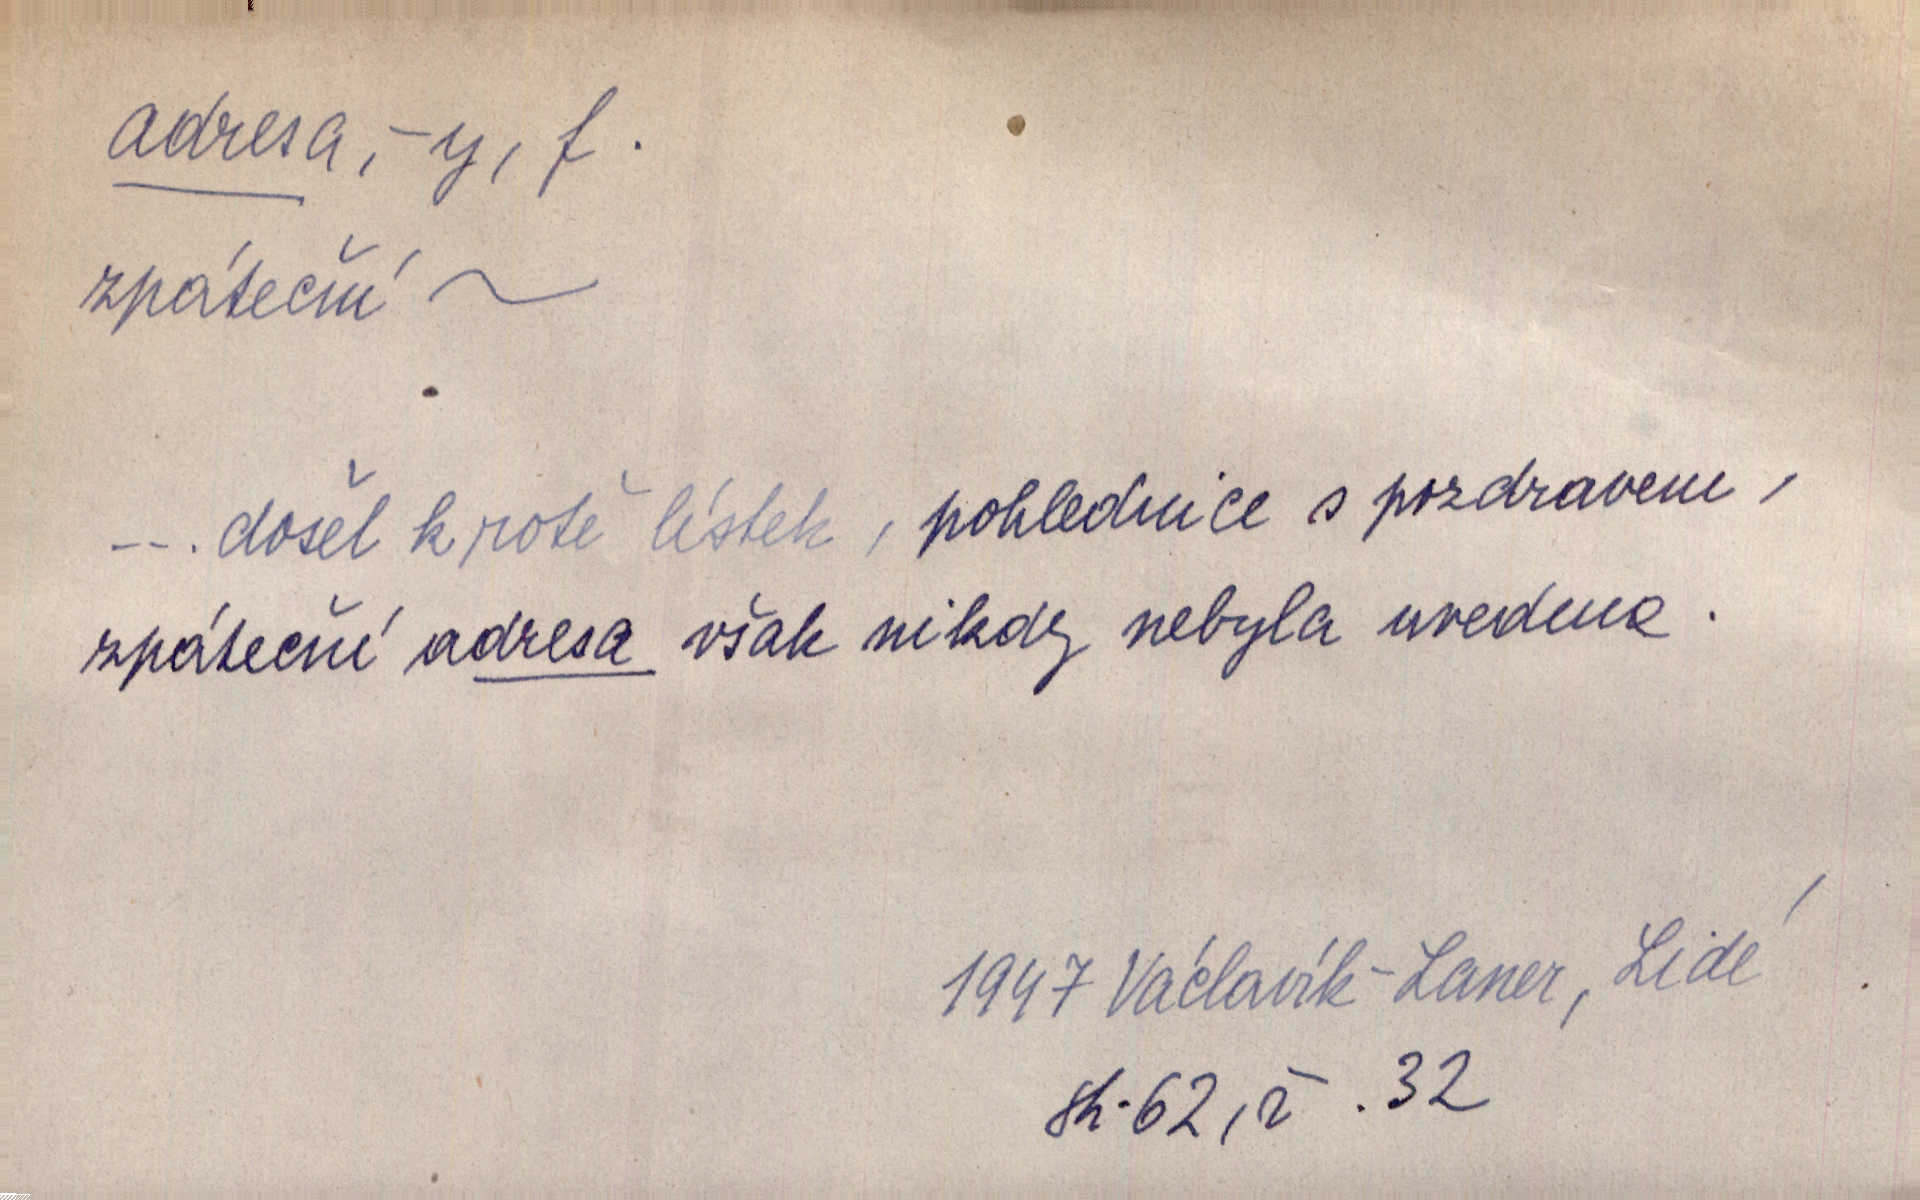 adresa, -y, f.
zpáteční ~
---. došel k rotě lístek, pohlednice s pozdravem,
zpáteční adresa však nikdy nebyla uvedena.
1947 Václavík-Laner, Lidé
str. 62, ř. 32